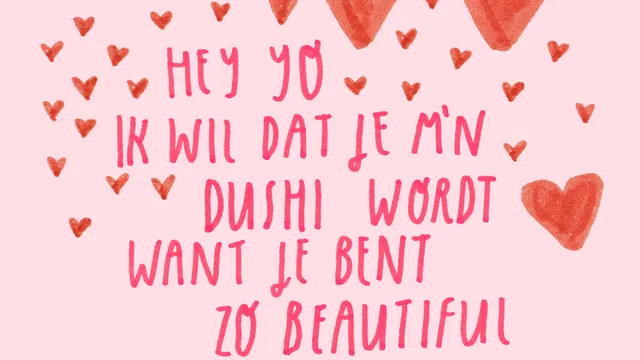 HEY YO
IK WIL DAT JE M'N
DUSHI WORDT
WANT JE BENT
ZO BEAUTIFUL